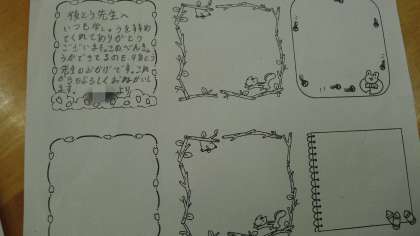 後とう先生へ
いつも しょうを進め
てくれてありがとう
ございます。このべんきょ
うができてるのも、後とう
先生のおかげです。これ
からもよろしくおねがいし
ます。 より